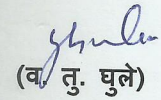 (व. तु. घुले)